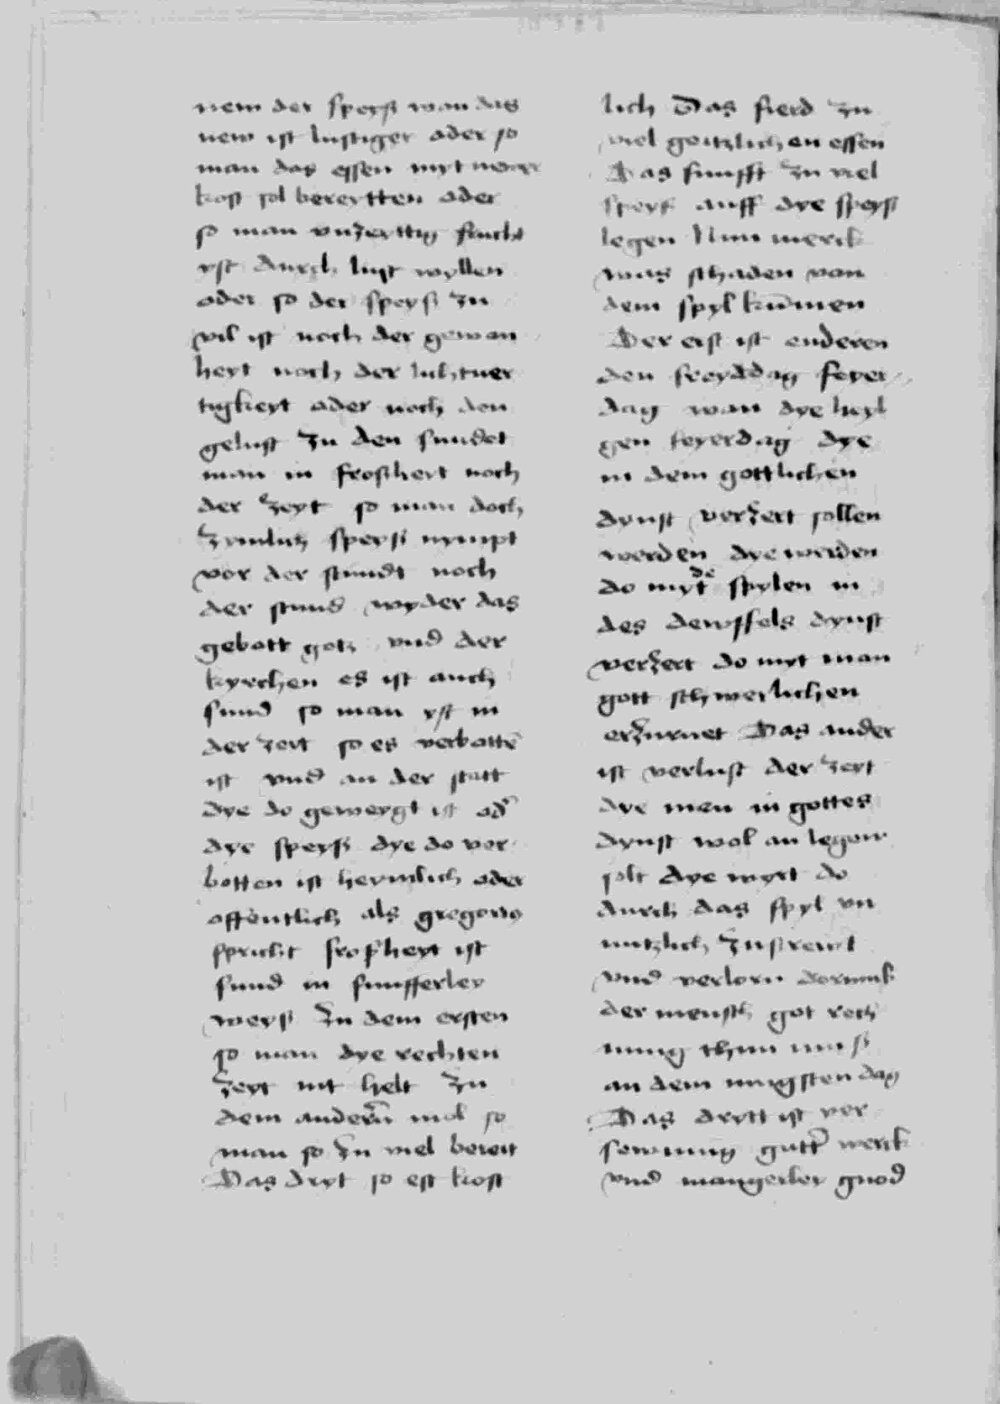 nem der speyß wan das
new ist lustiger oder so
man das essen myt newer
kost sol bereytten oder
so man vnzeyttig frucht
yst durch lust wyllen
oder so der speyß zu
vil ist noch der gewon
heyt noch der luchtuer
tigkeyt oder noch den
gelust zu den sundet
man in froshert noch
der zeyt so man doch
zymlich speyß nympt
vor der stundt noch
der stund wyder das
gebott gotz vnd der
kyrchen es ist auch
sund so man yst in
der zeit so es verbottē
ist vnd an der statt
dye do geweygt ist od̄
dye speyß dye do ver
botten ist heymlich oder
offentlich als gregorio
spricht frosheyt ist
sund in funfferley
weyß zu dem ersten
so man dye rechten
zeyt nit helt zu
dem anderñ mol so
man so zu viel bereit
Das dryt so est kost
lich Das fierd zu
viel geitzlichen essen
Das funfft zu viel
speyß auff dye speyß
legen Nun merck
was schaden von
dem spyl kum̄en
Der erst ist enderen
den freyddag feyer
dag wan dye heyl
gen feyerdag dye
in dem gottlichen
dynst verzert sollen
werden dye werden
do myt de spylen in
des dewffels dynst
verzert do myt man
gott schwerlichen
erzurnet Das ander
ist verlust der zeyt
dye men in gottes
dynst wol an legen
solt dye wyrt do
durch das spyl vn
nutzlich zustrewt
vnd verlorn dorumb
der mensch got rech
nung thun muß
an dem iungsten dag
Das drytt ist ver
sewmung gutt̄ werck
vnd mangerley gnod